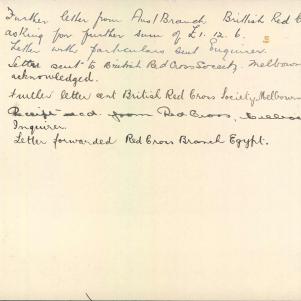 Further letter from Aus/Branch British Red C
asking for further sum of £1.12.6.
Letter with particulars sent Enquirer.
Letter sent to British Red Cross Society. Melbourn
acknowledged.
Further letter ant British Red Cross Society, Melbourn
Receipt ackd. from Red Cross,
Inquirer.
Letter forwarded Red Cross Branch Egypt.